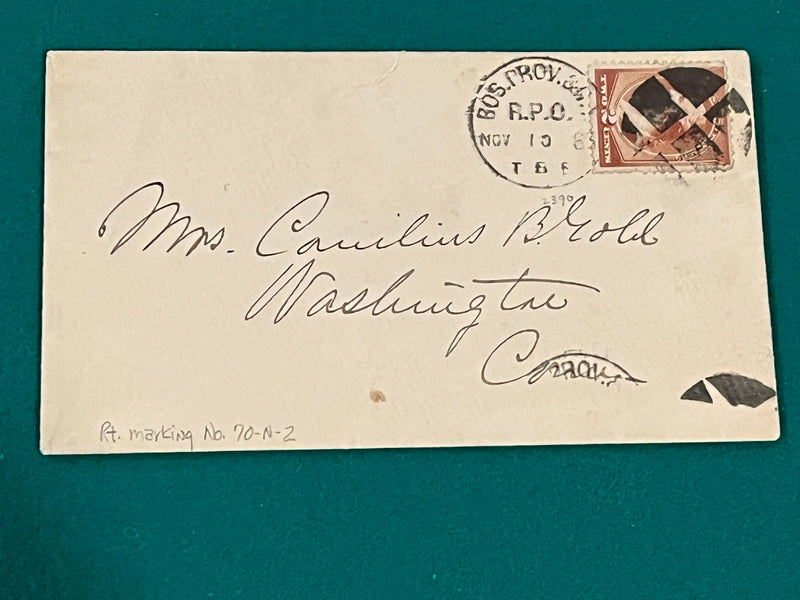 BOS. PROV. &
R.P.O.
NOV 10 83
T B E
TWO 2 CENTS
2390
Mrs. Cornilius B. Gold
Washington
Conn
PROV.
Rt. marking No. 70-N-2